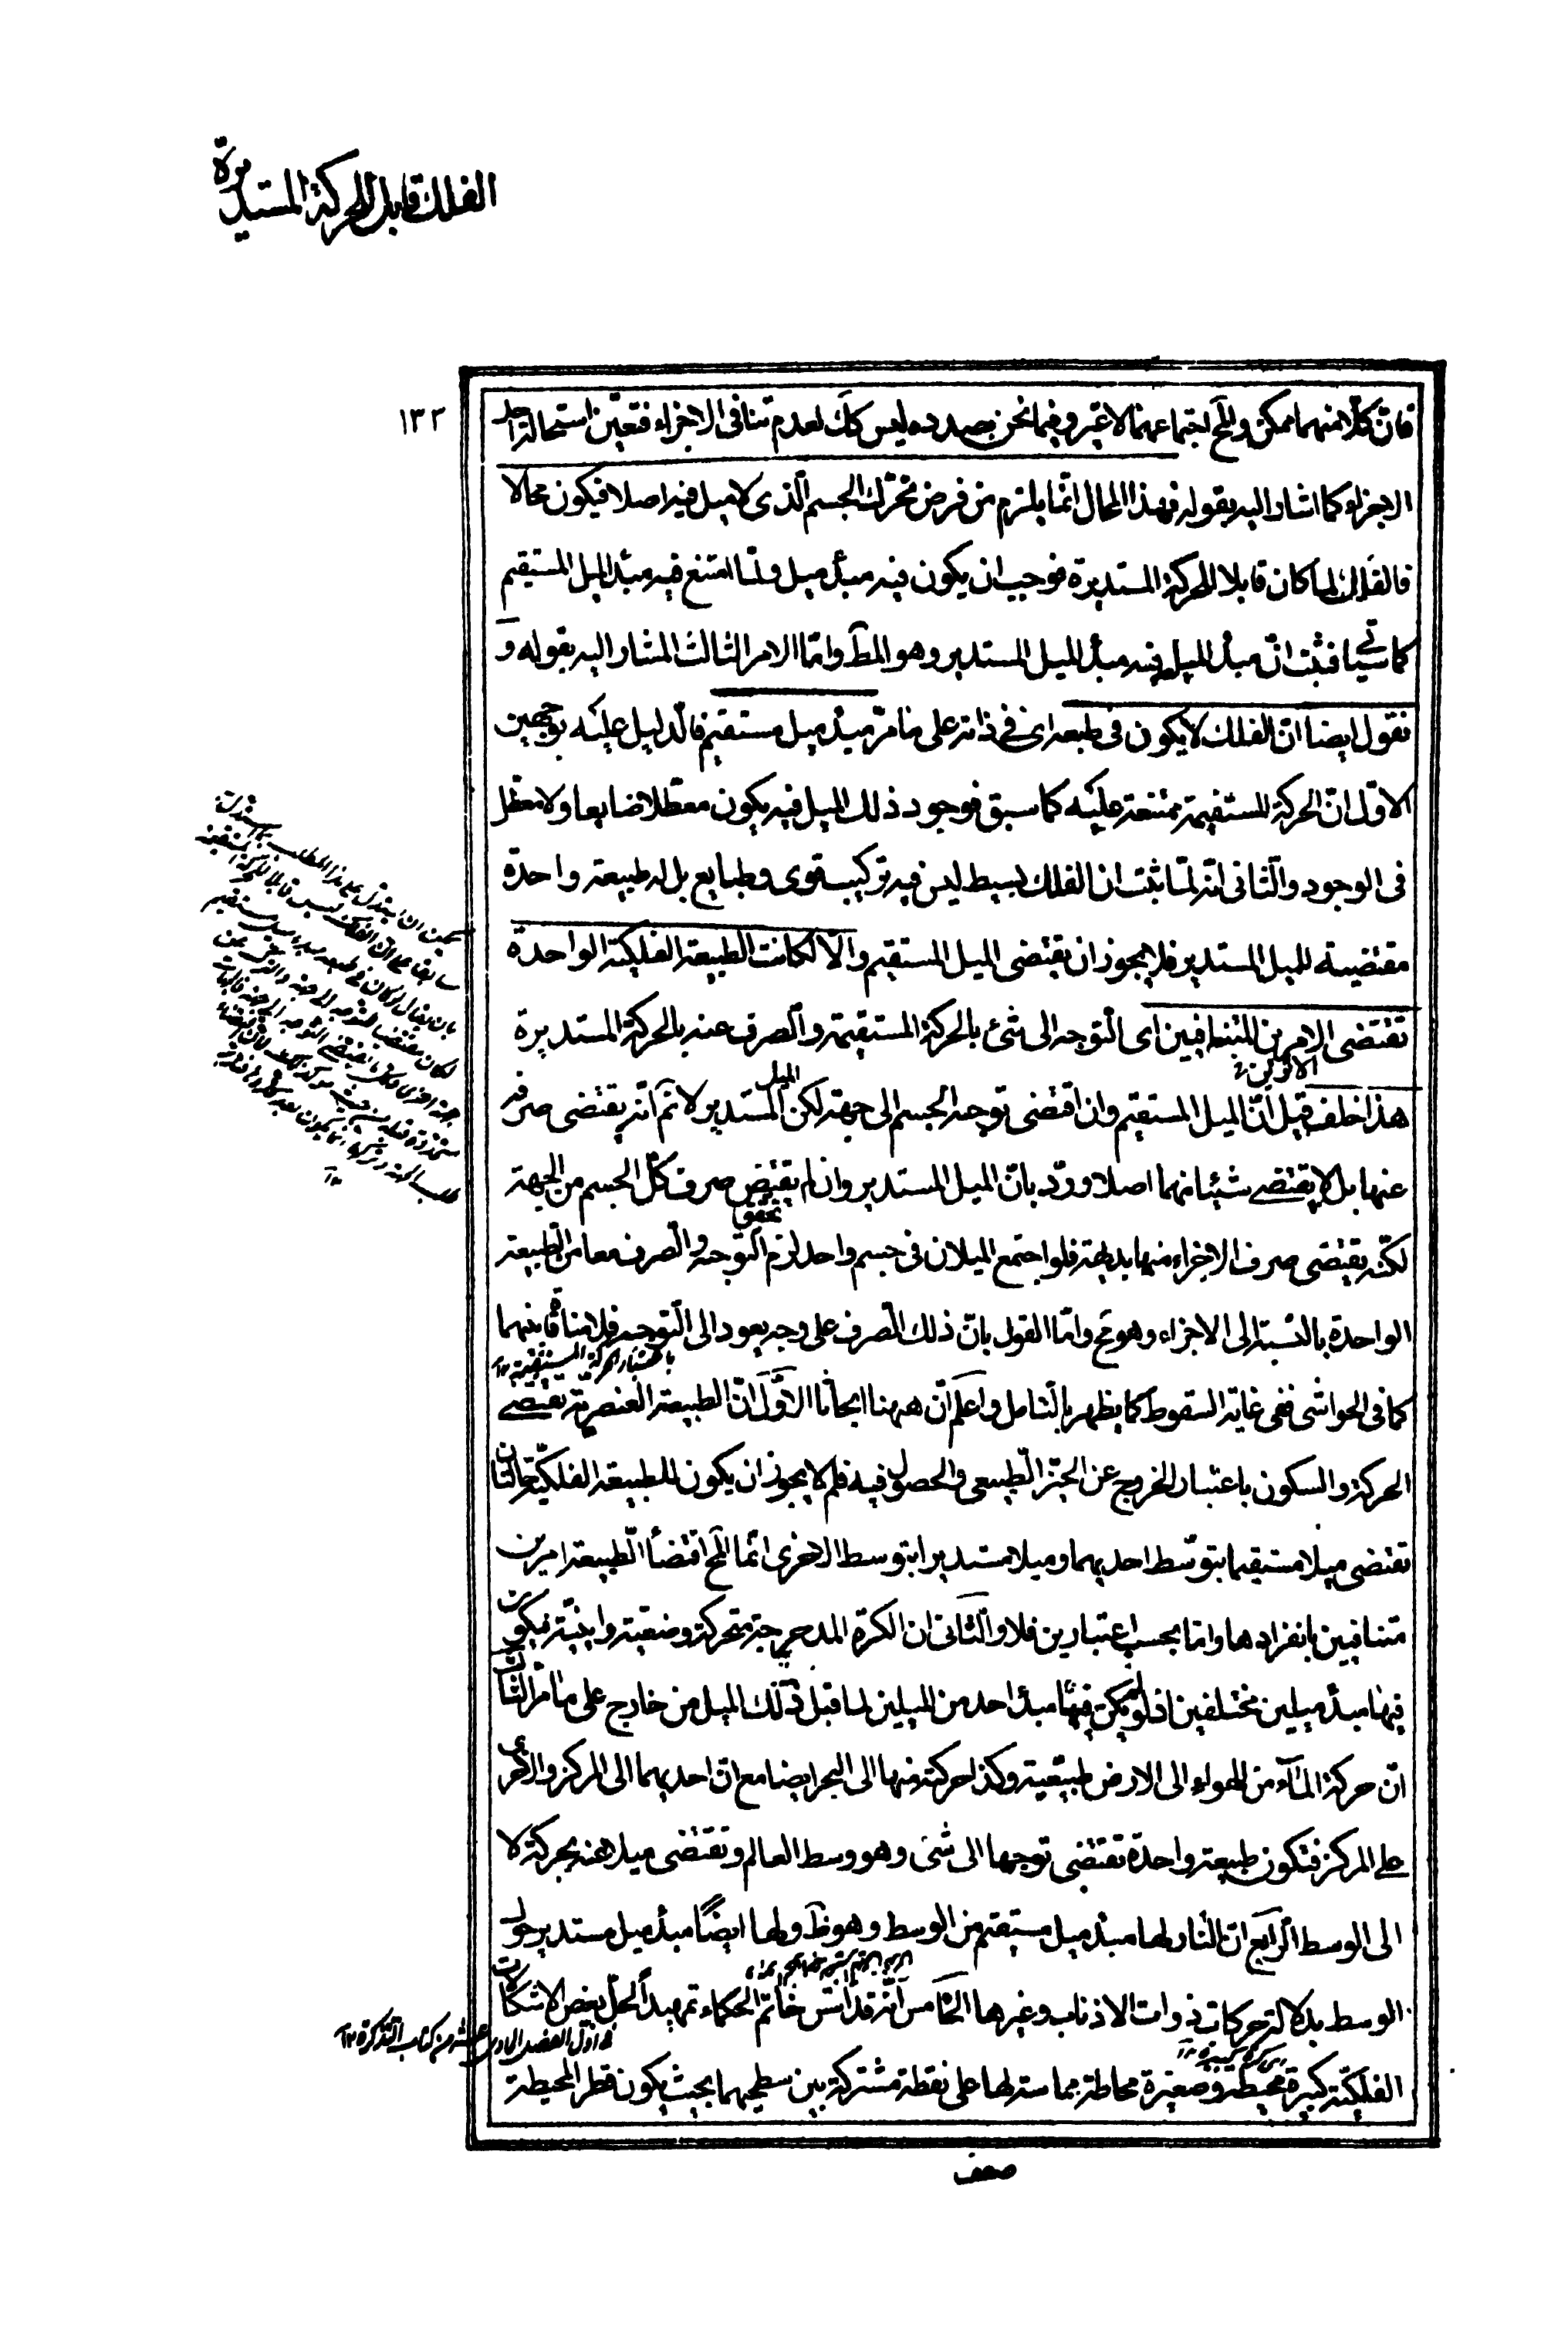 الفلك قابل للحركة المستديرة
١٣٢
فانّ كلّا منهما ممكن والمح اجتماعهما لا غير وفيما نحن بصدده ليس كك لعدم تنافى الاجزاء فتعيّن استحالة احد
الاجزاء كما اشار اليه بقوله فهذا المحال انّما يلزم من فرض تحرّك الجسم الّذى لا ميل فيه اصلا فيكون محالا
فالفلك لما كان قابلا للحركة المستديرة فوجب ان يكون فيه مبدأ ميل ولمّا امتنع فيه مبدأ الميل المستقيم
كما سيأتى فثبت انّ مبدأ الميل فيه مبدأ الميل المستدير وهو المط وامّا الامر الثالث المشار اليه بقوله و
نقول ايضا انّ الفلك لا يكون فى طبعه اى فى ذاته على ما مرّ مبدأ ميل مستقيم فالدليل عليه بوجهين
الاوّل انّ الحركة المستقيمة ممتنعة عليه كما سبق فوجود ذلك الميل فيه يكون معطّلا ضايعا ولا معطّل
فى الوجود والثانى انّه لمّا ثبت ان الفلك بسيط ليس فيه تركيب قوى وطبايع بل له طبيعة واحدة
مقتضية للميل المستدير فلا يجوز ان يقتضى الميل المستقيم والّا لكانت الطبيعة الفلكيّة الواحدة
تقتضى الامرين المتنافيين اى التّوجه الى شئ بالحركة المستقيمة والصّرف عنه بالحركة المستديرة
هذا خلف قيل انّ الميل المستقيم وان اقتضى توجه الجسم الى جهة لكن الميل المستدير لا نم انّه يقتضى صرفه
عنها بل لا يقتضى شيئا منهما اصلا وردّ بانّ الميل المستدير وان لم يقتض صرف كلّ الجسم من الجهة
لكنّه يقتضى صرف الاجزاء منها بديهة فلو اجتمع الميلان فى جسم واحد لزم تحقق التّوجه والصّرف معا من الطبيعة
الواحدة بالنسبة الى الاجزاء وهو مح وامّا القول بانّ ذلك الصّرف على وجه يعود الى التّوجه فلا منافاة بينهما
باعتبار الحركة المستقيمة ١٢
كما فى الحواشى ففى غاية السقوط كما يظهر بالتّامل واعلم انّ ههنا ابحاثا الاوّل انّ الطبيعة العنصرية تقتضى
الحركة والسكون باعتبار الخروج عن الحيّز الطّبيعى والحصول فيه فلم لا يجوز ان يكون للطبيعة الفلكيّة حالتان
تقتضى ميلا مستقيما بتوسّط احديهما وميلا مستديرا بتوسط الاخرى انّما المح اقتضاء الطّبيعة امرين
متنافيين بانفرادها وامّا بحسب اعتبارين فلا والثّانى ان الكرة المدحرجة متحركة وضعيّة واينيّة فيكون
فيها مبدأ ميلين مختلفين اذ لو لم يكن فيها مبدأ احد من الميلين لما قبل ذلك الميل من خارج على ما مرّ الثالث
انّ حركة المآء من الهواء الى الارض طبيعيّة وكذا حركته منها الى البحر ايضا مع انّ احديهما الى المركز والاخرى
على المركز فتكون طبيعة واحدة تقتضى توجها الى شئ وهو وسط العالم وتقتضى ميلا عنه بحركة لا
الى الوسط الرّابع انّ النّار لها مبدأ ميل مستقيم من الوسط وهو ظ ولها ايضًا مبدأ ميل مستدير حول
الوسط بدلالة حركات ذوات الاذناب وغيرها الخامس انّه قد اسّس خاتم الحكماء تمهيداً لحلّ بعض الاشكالات
فى اوّل الفصل الحادى عشر من كتاب التذكرة ١٢
الفلكيّة كبيرة محيطة وصغيرة محاطة مماسة لها على نقطة مشتركة بين سطحيهما بحيث يكون قطر المحيطة
ضعف